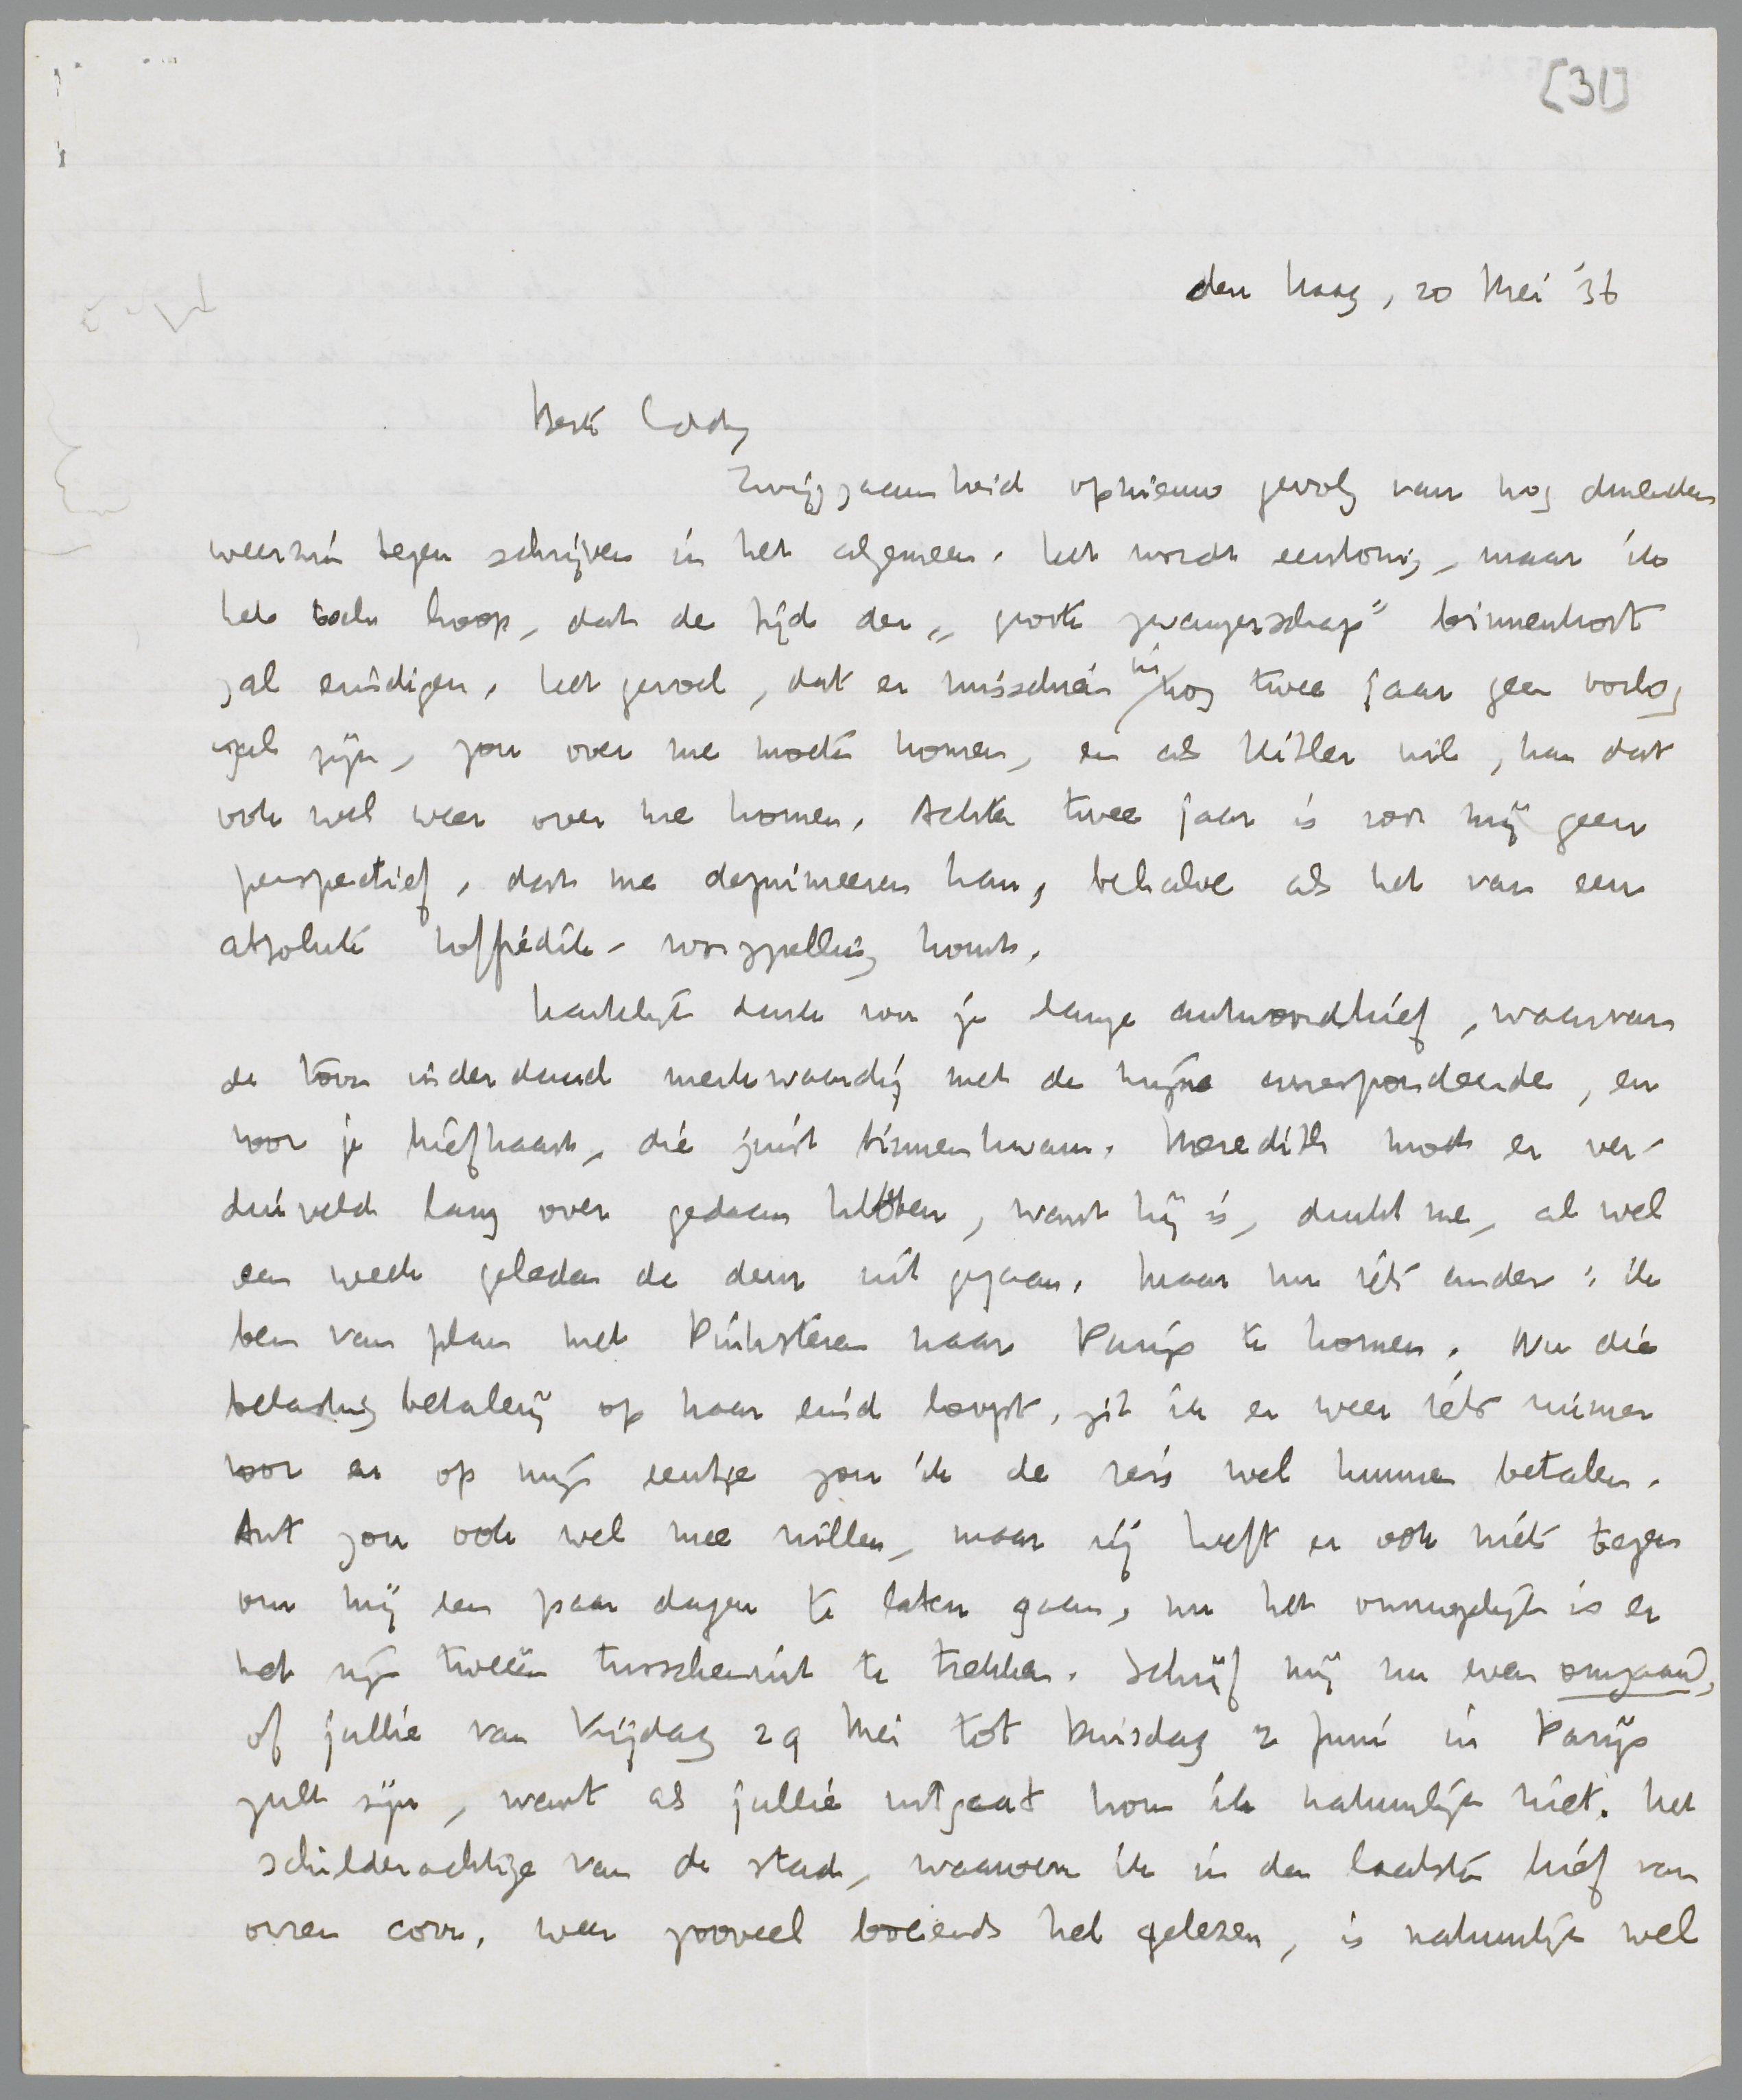 [31]
den Haag, 20 Mei '36
Beste Eddy
Zwijgzaamheid opnieuw gevolg van nog durenden
weerzin tegen schrijven in het algemeen. Het wordt eentonig, maar ik
heb toch hoop, dat de tijd der „groote zwangerschap” binnenkort
zal eindigen. Het gevoel, dat er misschien in nog twee jaar geen oorlog
zal zijn, zou over me moeten komen, en als Hitler wil, kan dat
ook wel weer over me komen. Achter twee jaar is voor mij geen
perspectief, dat me deprimeeren kan, behalve als het van een
absolute koffiedik-voorspelling komt.
Hartelijk dank voor je lange antwoordbrief, waarvan
de toon inderdaad merkwaardig met de mijne correspondeerde, en
voor je briefkaart, die juist binnenkwam. Meredith moet er ver-
duiveld lang over gedaan hebben, want hij is, dunkt me, al wel
een week geleden de deur uit gegaan. Maar nu iets anders: ik
ben van plan met Pinksteren naar Parijs te komen. Nu die
belastingbetalerij op haar eind loopt, zit ik er weer iets ruimer
voor en op mijn eentje zou ik de reis wel kunnen betalen.
Ant zou ook wel mee willen, maar zij heeft er ook niets tegen
om mij een paar dagen te laten gaan, nu het onmogelijk is er
met zijn tweeën tusschenuit te trekken. Schrijf mij nu even omgaand,
of jullie van Vrijdag 29 Mei tot Dinsdag 2 Juni in Parijs
zult zijn, want als jullie uitgaat kom ik natuurlijk niet. Het
schilderachtige van de stad, waarover ik in den laatsten brief van
onzen corr. weer zooveel boeiends heb gelezen, is natuurlijk wel